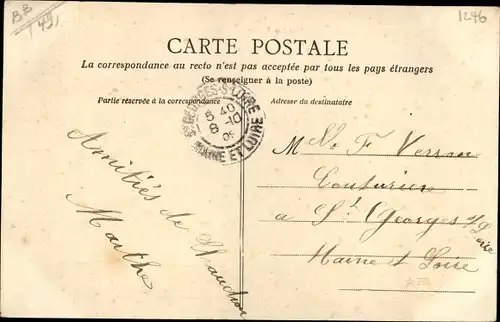 BB
491
1246
CARTE POSTALE
La correspondance au recto n'est pas acceptée par tous les pays étrangers
(Se renseigner à la poste)
Partie réservée à la correspondance
Adresse du destinataire
ST GEORGES-S-LOIRE
5 40
8 -10
09
MAINE ET LOIRE
Amitiés de
Marthe
Mr F. Verron
Couturier
à St Georges s/Loire
Maine et Loire